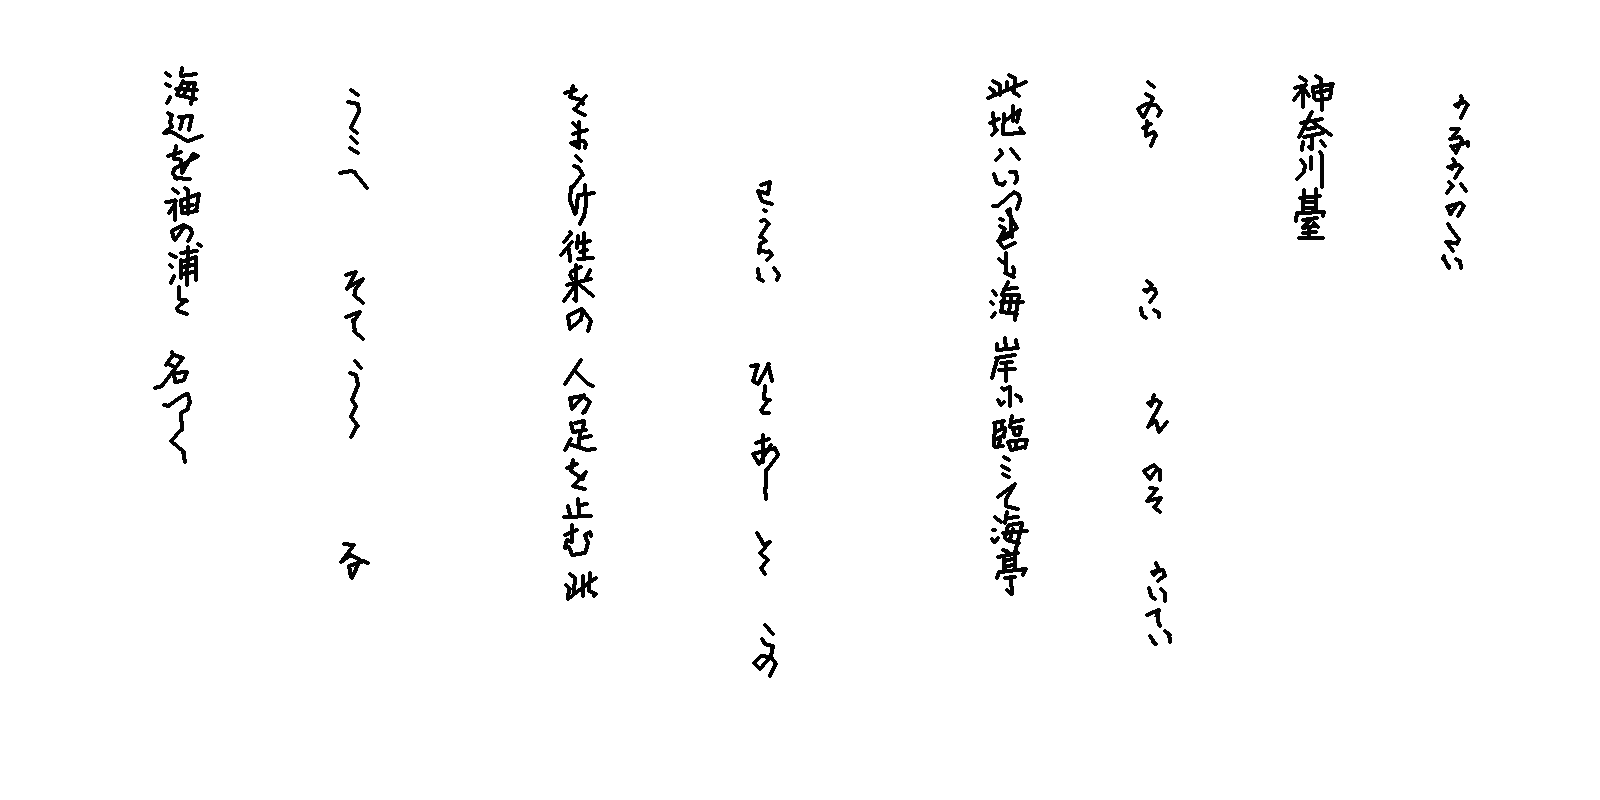 かなかハのたい
神奈川臺
このち かい かん のそ かいてい
此地ハいつれも海岸に臨ミて海亭
わうらい ひと あし とゝ この
をまうけ往来の人の足を止む此
うミへ そて うら な
海辺を袖の浦と名つく